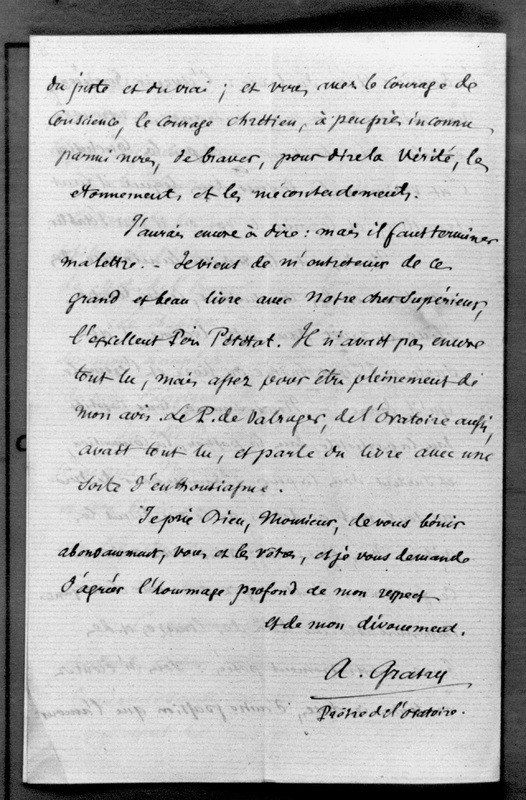 du juste et du vrai ; et vous avez le courage de
Conscience, le courage chrétien, à peu près inconnu
parmi nous, de braver, pour dire la Vérité, les
étonnements et les mécontentements.
J'aurais encore à dire : mais il faut terminer
ma lettre. - Je viens de m'entretenir de ce
grand et beau livre avec Notre cher Supérieur,
l'excellent Père Pététot. Il n'avait pas encore
tout lu, mais assez pour être pleinement de
mon avis. Le P. de Valroger, de l'Oratoire aussi,
avait tout lu, et parle du livre avec une
sorte d'enthousiasme.
Je prie Dieu, Monsieur, de vous bénir
abondamment, vous et les vôtres, et je vous demande
d'agréer l'hommage profond de mon respect
et de mon dévouement.
A. Gratry
Prêtre de l'Oratoire.